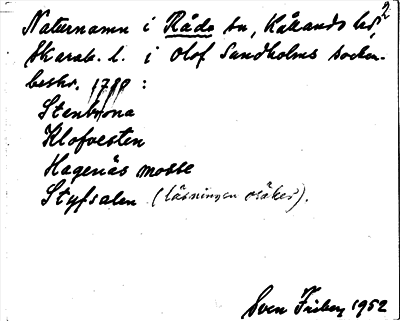 2
Naturnamn i Råda sn, Kållands hd,
Skarab. l. i Olof Sundholms socken-
beskr. :
Stenbrona
Klofvesten
Hagenäs mosse
Styfsalen (läsningen osäker).
Sven Friberg 1952